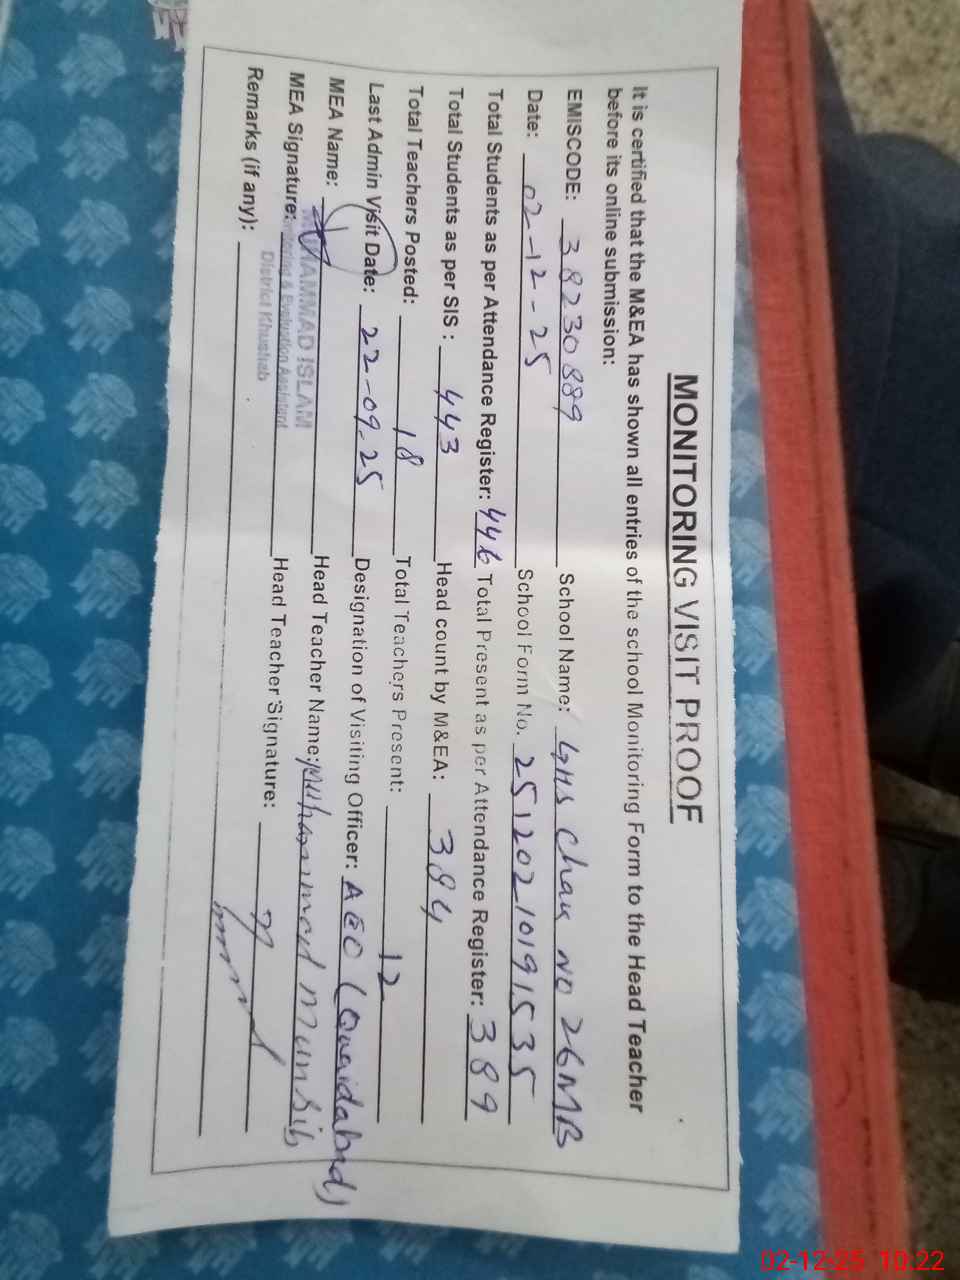 MONITORING VISIT PROOF
It is certified that the M&EA has shown all entries of the school Monitoring Form to the Head Teacher
before its online submission:
EMISCODE: 38230889 School Name: GHS Chak NO 26MB
Date: 02-12-25 School Form No. 25120210191535
Total Students as per Attendance Register: 446 Total Present as per Attendance Register: 389
Total Students as per SIS : 443 Head count by M&EA: 384
Total Teachers Posted: 18 Total Teachers Present: 12
Last Admin Visit Date: 22-09-25 Designation of Visiting Officer: AEO (Quaidabad)
MEA Name: Head Teacher Name: Muhammad Munsib
MUHAMMAD ISLAM
MEA Signature: Head Teacher Signature:
Monitoring & Evaluation Assistant
District Khushab
Remarks (if any):
02-12-25 10:22